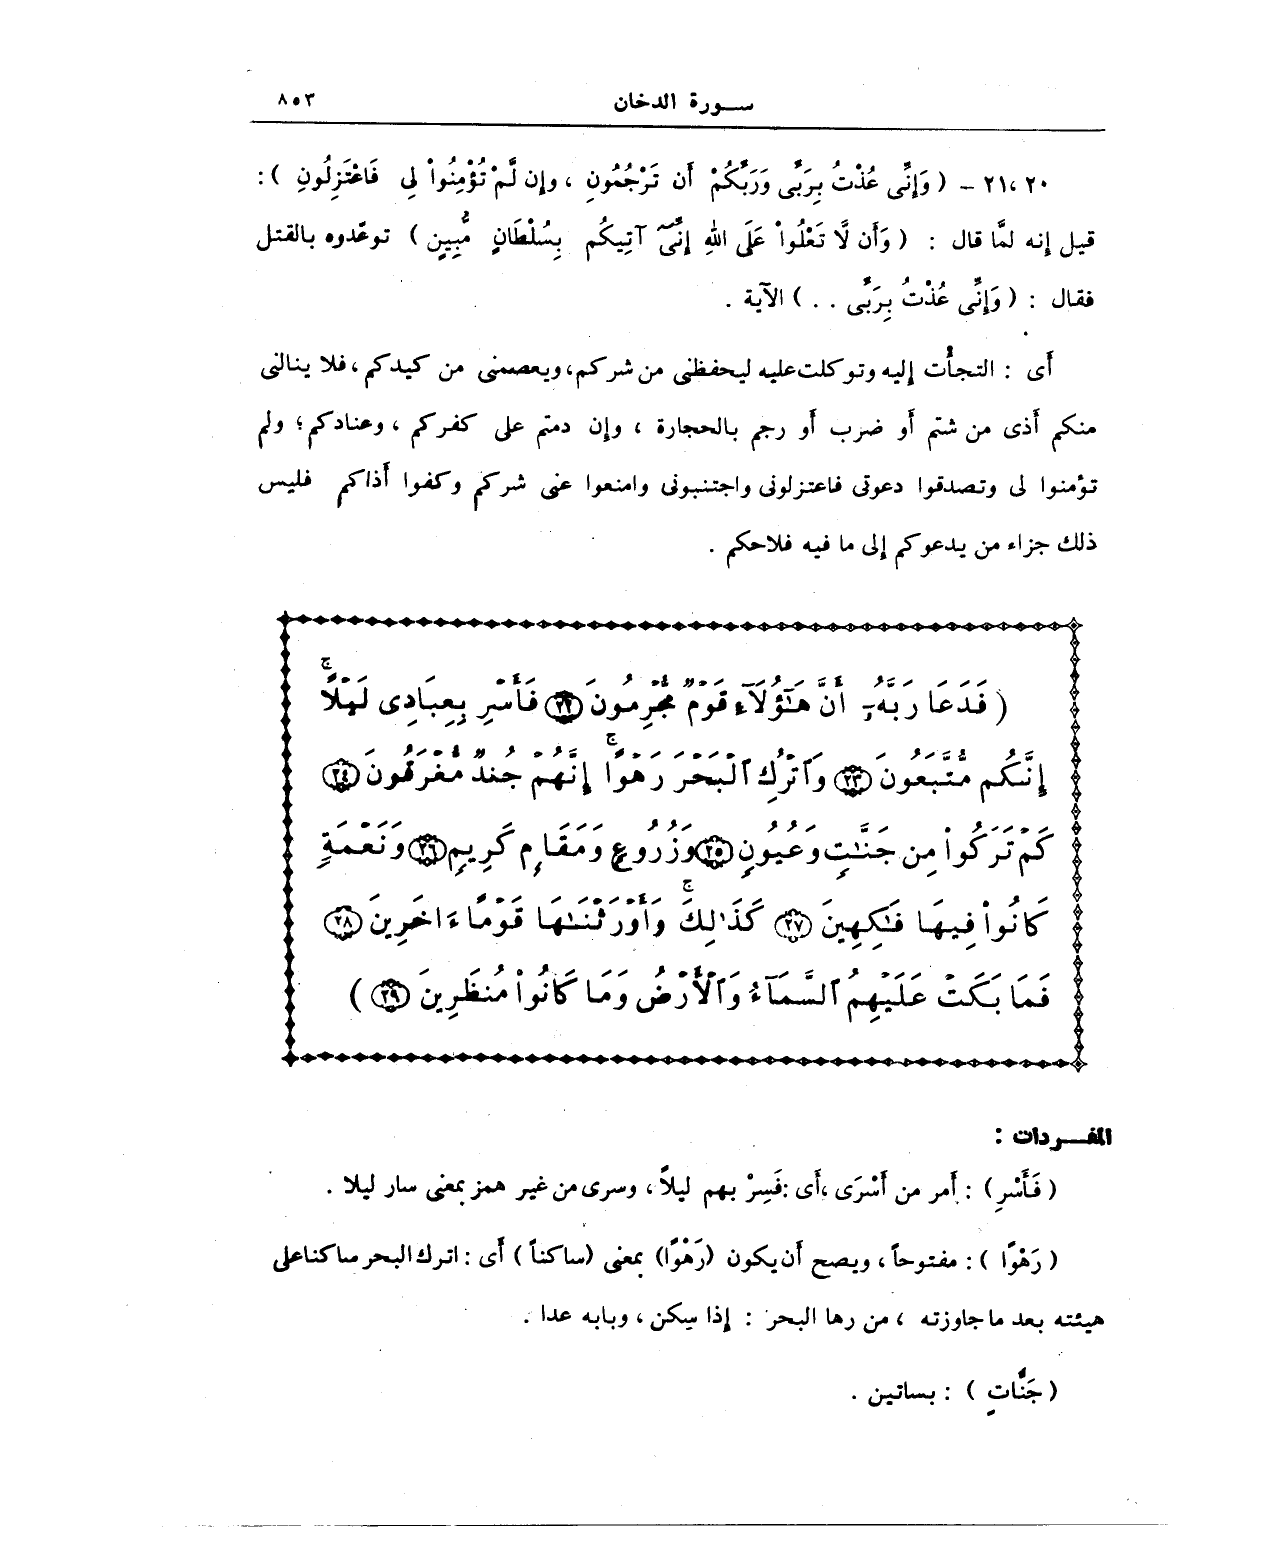 سورة الدخان ٨٥٣
٢٠، ٢١ – ( وَإِنِّى عُذْتُ بِرَبِّى وَرَبِّكُمْ أَن تَرْجُمُونِ ، وإن لَّمْ تُؤْمِنُواْ لِى فَاعْتَزِلُونِ ) :
قيل إنه لمَّا قال : ( وَأَن لَّا تَعْلُواْ عَلَى اللهِ إِنِّىٓ آتِيكُم بِسُلْطَانٍ مُّبِينٍ ) توعَّدوه بالقتل
فقال : ( وَإِنِّى عُذْتُ بِرَبِّى . . ) الآية .
أَى : التجأْت إليه وتوكلت عليه ليحفظنى من شركم، ويعصمنى من كيدكم ، فلا ينالنى
منكم أَذى من شتم أَو ضرب أَو رجم بالحجارة ، وإن دمتم على كفركم ، وعنادكم ؛ ولم
تؤمنوا لى وتصدقوا دعوتى فاعتزلونى واجتنبونى وامنعوا عنى شركم وكفوا أَذاكم فليس
ذلك جزاء من يدعوكم إلى ما فيه فلاحكم .
( فَدَعَا رَبَّهُۥٓ أَنَّ هَـٰٓؤُلَآءِ قَوْمٌ مُّجْرِمُونَ ٢٢ فَأَسْرِ بِعِبَادِى لَيْلًاۚ
إِنَّكُم مُّتَّبَعُونَ ٢٣ وَٱتْرُكِ ٱلْبَحْرَ رَهْوًاۚ إِنَّهُمْ جُندٌ مُّغْرَقُونَ ٢٤
كَمْ تَرَكُواْ مِن جَنَّـٰتٍ وَعُيُونٍ ٢٥ وَزُرُوعٍ وَمَقَامٍ كَرِيمٍ ٢٦ وَنَعْمَةٍ
كَانُواْ فِيهَا فَـٰكِهِينَ ٢٧ كَذَٰلِكَۚ وَأَوْرَثْنَـٰهَا قَوْمًا ءَاخَرِينَ ٢٨
فَمَا بَكَتْ عَلَيْهِمُ ٱلسَّمَآءُ وَٱلْأَرْضُ وَمَا كَانُواْ مُنظَرِينَ ٢٩ )
المفــردات :
( فَأَسْرِ ) : أَمر من أَسْرَى ،أَى :فَسِرْ بهم ليلاً ، وسرى من غير همز بمعنى سار ليلا .
( رَهْوًا ) : مفتوحاً ، ويصح أَن يكون (رَهْوًا) بمعنى (ساكناً ) أَى : اترك البحر ساكنا على
هيئته بعد ما جاوزته ، من رها البحر : إذا سكن ، وبابه عدا .
( جَنَّاتٍ ) : بساتين .